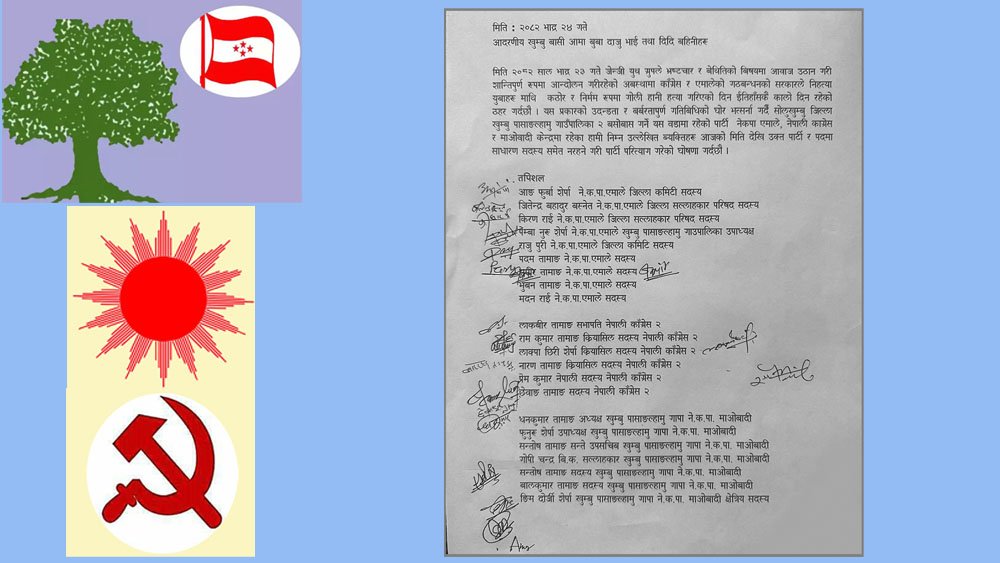 मिति : २०८२ भाद्र २४ गते
आदरणीय खुम्बु बासी आमा बुबा दाजु भाई तथा दिदि बहिनीहरू
मिति २०८२ साल भाद्र २३ गते जेन्जी युथ ग्रुपले भ्रष्टचार र बेथितिको बिषयमा आवाज उठान गरी
शान्तिपुर्ण रूपमा आन्दोलन गरीरहेको अबस्थामा काँग्रेस र एमालेको गठबन्धनको सरकारले निहत्था
युबाहरू माथि कठोर र निर्मम रूपमा गोली हानी हत्या गरिएको दिन ईतिहाँसकै कालो दिन रहेको
ठहर गर्दछौं । यस प्रकारको उदन्डता र बर्बरतापुर्ण गतिबिधिको घोर भत्सर्ना गर्दै सोलुखुम्बु जिल्ला
खुम्बु पासाङल्हामु गाउँपालिका २ बसोबास गर्ने यस वडामा रहेको पार्टी नेकपा एमाले, नेपाली काग्रेस
र माओवादी केन्द्रमा रहेका हामी निम्न उल्लेखित ब्यक्तिहरू आजको मिति देखि उक्त पार्टी र पदमा
साधारण सदस्य समेत नरहने गरी पार्टी परित्याग गरेको घोषणा गर्दछौं ।
तपिशल
आङ फुर्बा शेर्पा ने.क.पा.एमाले जिल्ला कमिटी सदस्य
जितेन्द्र बहादुर बस्नेत ने.क.पा.एमाले जिल्ला सल्लाहकार परिषद सदस्य
किरण राई ने.क.पा.एमाले जिल्ला सल्लाहकार परिषद सदस्य
पेम्बा नुरू शेर्पा ने.क.पा.एमाले खुम्बु पासाङल्हामु गाउपालिका उपाध्यक्ष
राजु पुरी ने.क.पा.एमाले जिल्ला कमिटि सदस्य
पदम तामाङ ने.क.पा.एमाले सदस्य
तामाङ ने.क.पा.एमाले सदस्य
भुबन तामाङ ने.क.पा.एमाले सदस्य
मदन राई ने.क.पा.एमाले सदस्य
लाकबीर तामाङ सभापति नेपाली काँग्रेस २
राम कुमार तामाङ क्रियासिल सदस्य नेपाली काँग्रेस २
लाक्पा छिरी शेर्पा क्रियासिल सदस्य नेपाली काँग्रेस २
नारण तामाङ क्रियासिल सदस्य नेपाली काँग्रेस २
प्रेम कुमार नेपाली सदस्य नेपाली काँग्रेस २
छेवाङ तामाङ सदस्य नेपाली काँग्रेस २
धनकुमार तामाङ अध्यक्ष खुम्बु पासाङल्हामु गापा ने.क.पा. माओबादी
फुनुरू शेर्पा उपाध्यक्ष खुम्बु पासाङल्हामु गापा ने.क.पा. माओबादी
सन्तोष तामाङ सन्ते उपसचिब खुम्बु पासाङल्हामु गापा ने.क.पा. माओबादी
गोपी चन्द्र बि.क. सल्लाहकार खुम्बु पासाङल्हामु गापा ने.क.पा. माओबादी
सन्तोष तामाङ सदस्य खुम्बु पासाङल्हामु गापा ने.क.पा. माओबादी
बालकुमार तामाङ सदस्य खुम्बु पासाङल्हामु गापा ने.क.पा. माओबादी
ङिम दोर्जी शेर्पा खुम्बु पासाङल्हामु गापा ने.क.पा. माओबादी क्षेत्रिय सदस्य